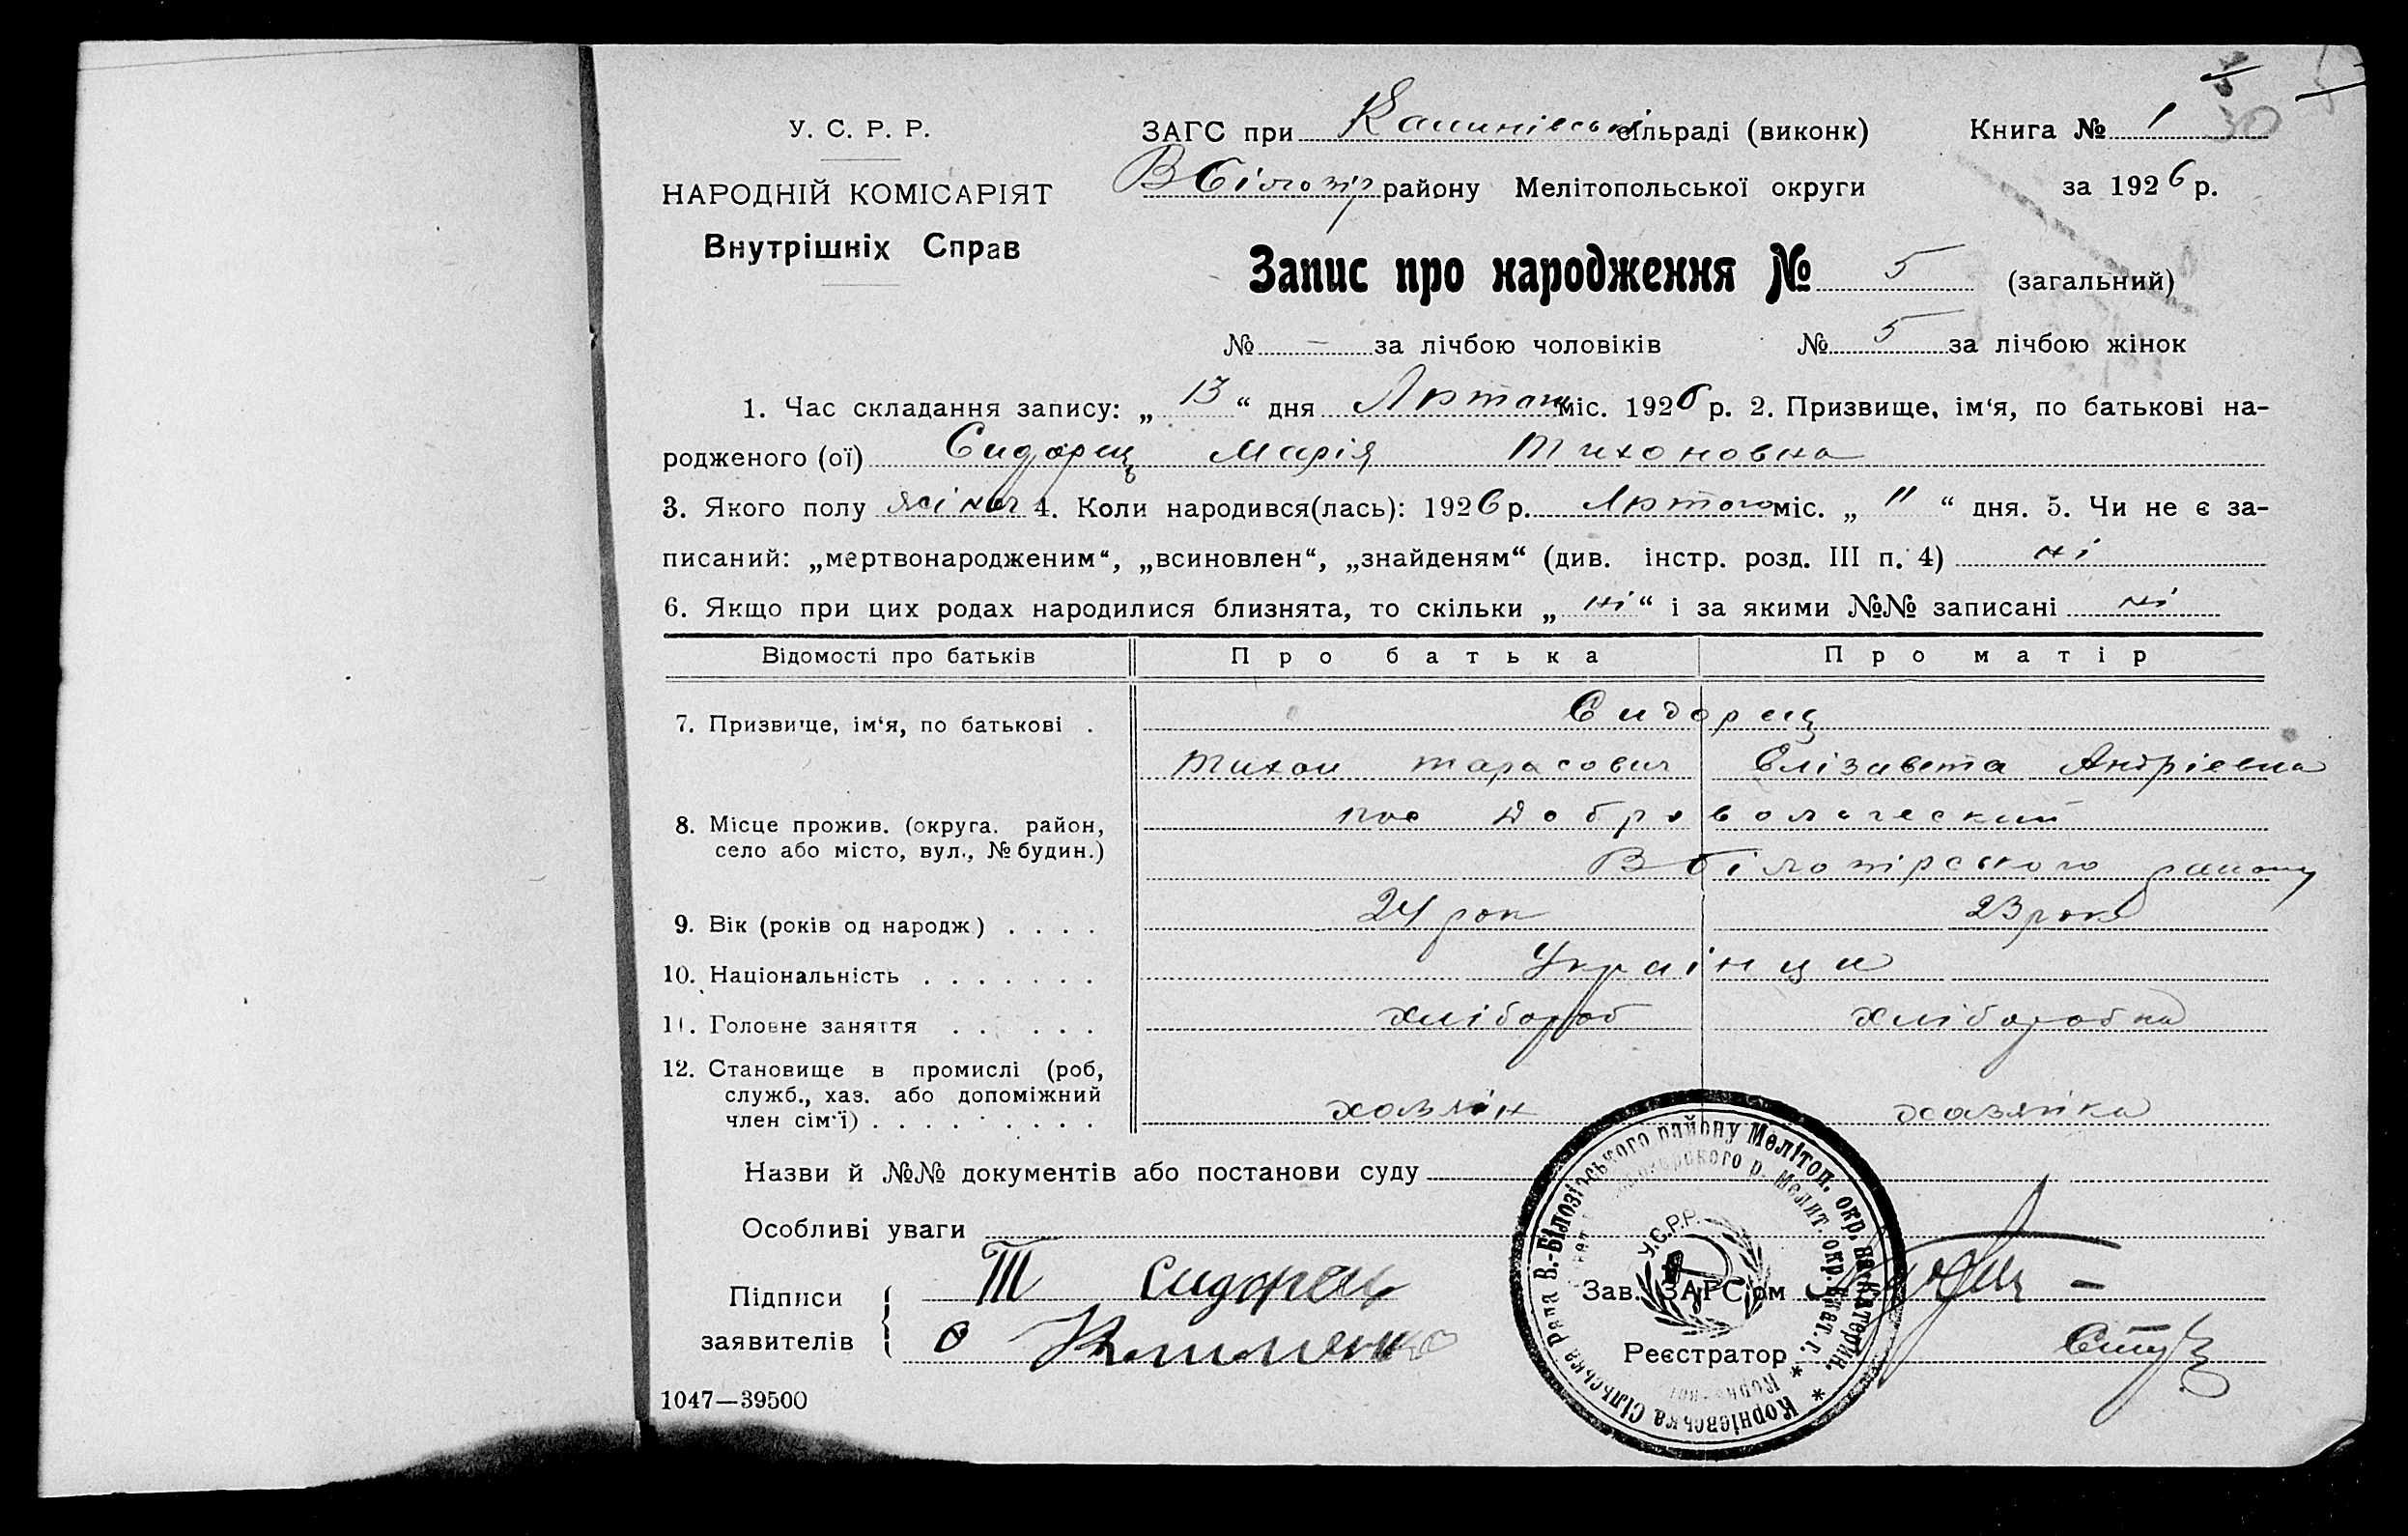 У. С. Р. Р.
НАРОДНІЙ КОМІСАРІЯТ
Внутрішніх Справ
ЗАГС при сільраді (виконк) Книга № 1
В Білозір району Мелітопольської округи за 1926 р.
Запис про народження № 5 (загальний)
№ — за лічбою чоловіків № 5 за лічбою жінок
1. Час складання запису: „ 13 “ дня Лютого міс. 1926 р. 2. Призвище, ім‘я, по батькові на-
родженого (ої) Сидорец Марія Тихоновна
3. Якого полу жіноч 4. Коли народився(лась): 1926 р. Лютого міс. „ 11 “ дня. 5. Чи не є за-
писаний: „мертвонародженим“, „всиновлен“, „знайденям“ (див. інстр. розд. III п. 4) ні
6. Якщо при цих родах народилися близнята, то скільки „ ні “ і за якими №№ записані ні
Відомості про батьків Про батька Про матір
7. Призвище, ім‘я, по батькові . Сидорец
Тихон Тарасович Єлізавета Андріевна
8. Місце прожив. (округа. район,
село або місто, вул., № будин.)
пос Добровольческий
В білозірського району
9. Вік (років од народж.) . . . . 24 рок 23 рок
10. Національність . . . . . . . Українци
11. Головне заняття . . . . . . хлібороб хлібаробка
12. Становище в промислі (роб,
служб., хаз. або допоміжний
член сім‘ї) . . . . . . . . хозяїн хазяйка
Назви й №№ документів або постанови суду
Особливі уваги
Підписи
заявителів
Т Сидорец
О Клименко
Зав. ЗАГС‘ом
Реєстратор
Корнієвська Сільська Рада В.-Білозірського району Мелітоп. окр. на Катерин.
У.С.Р.Р.
1047—39500